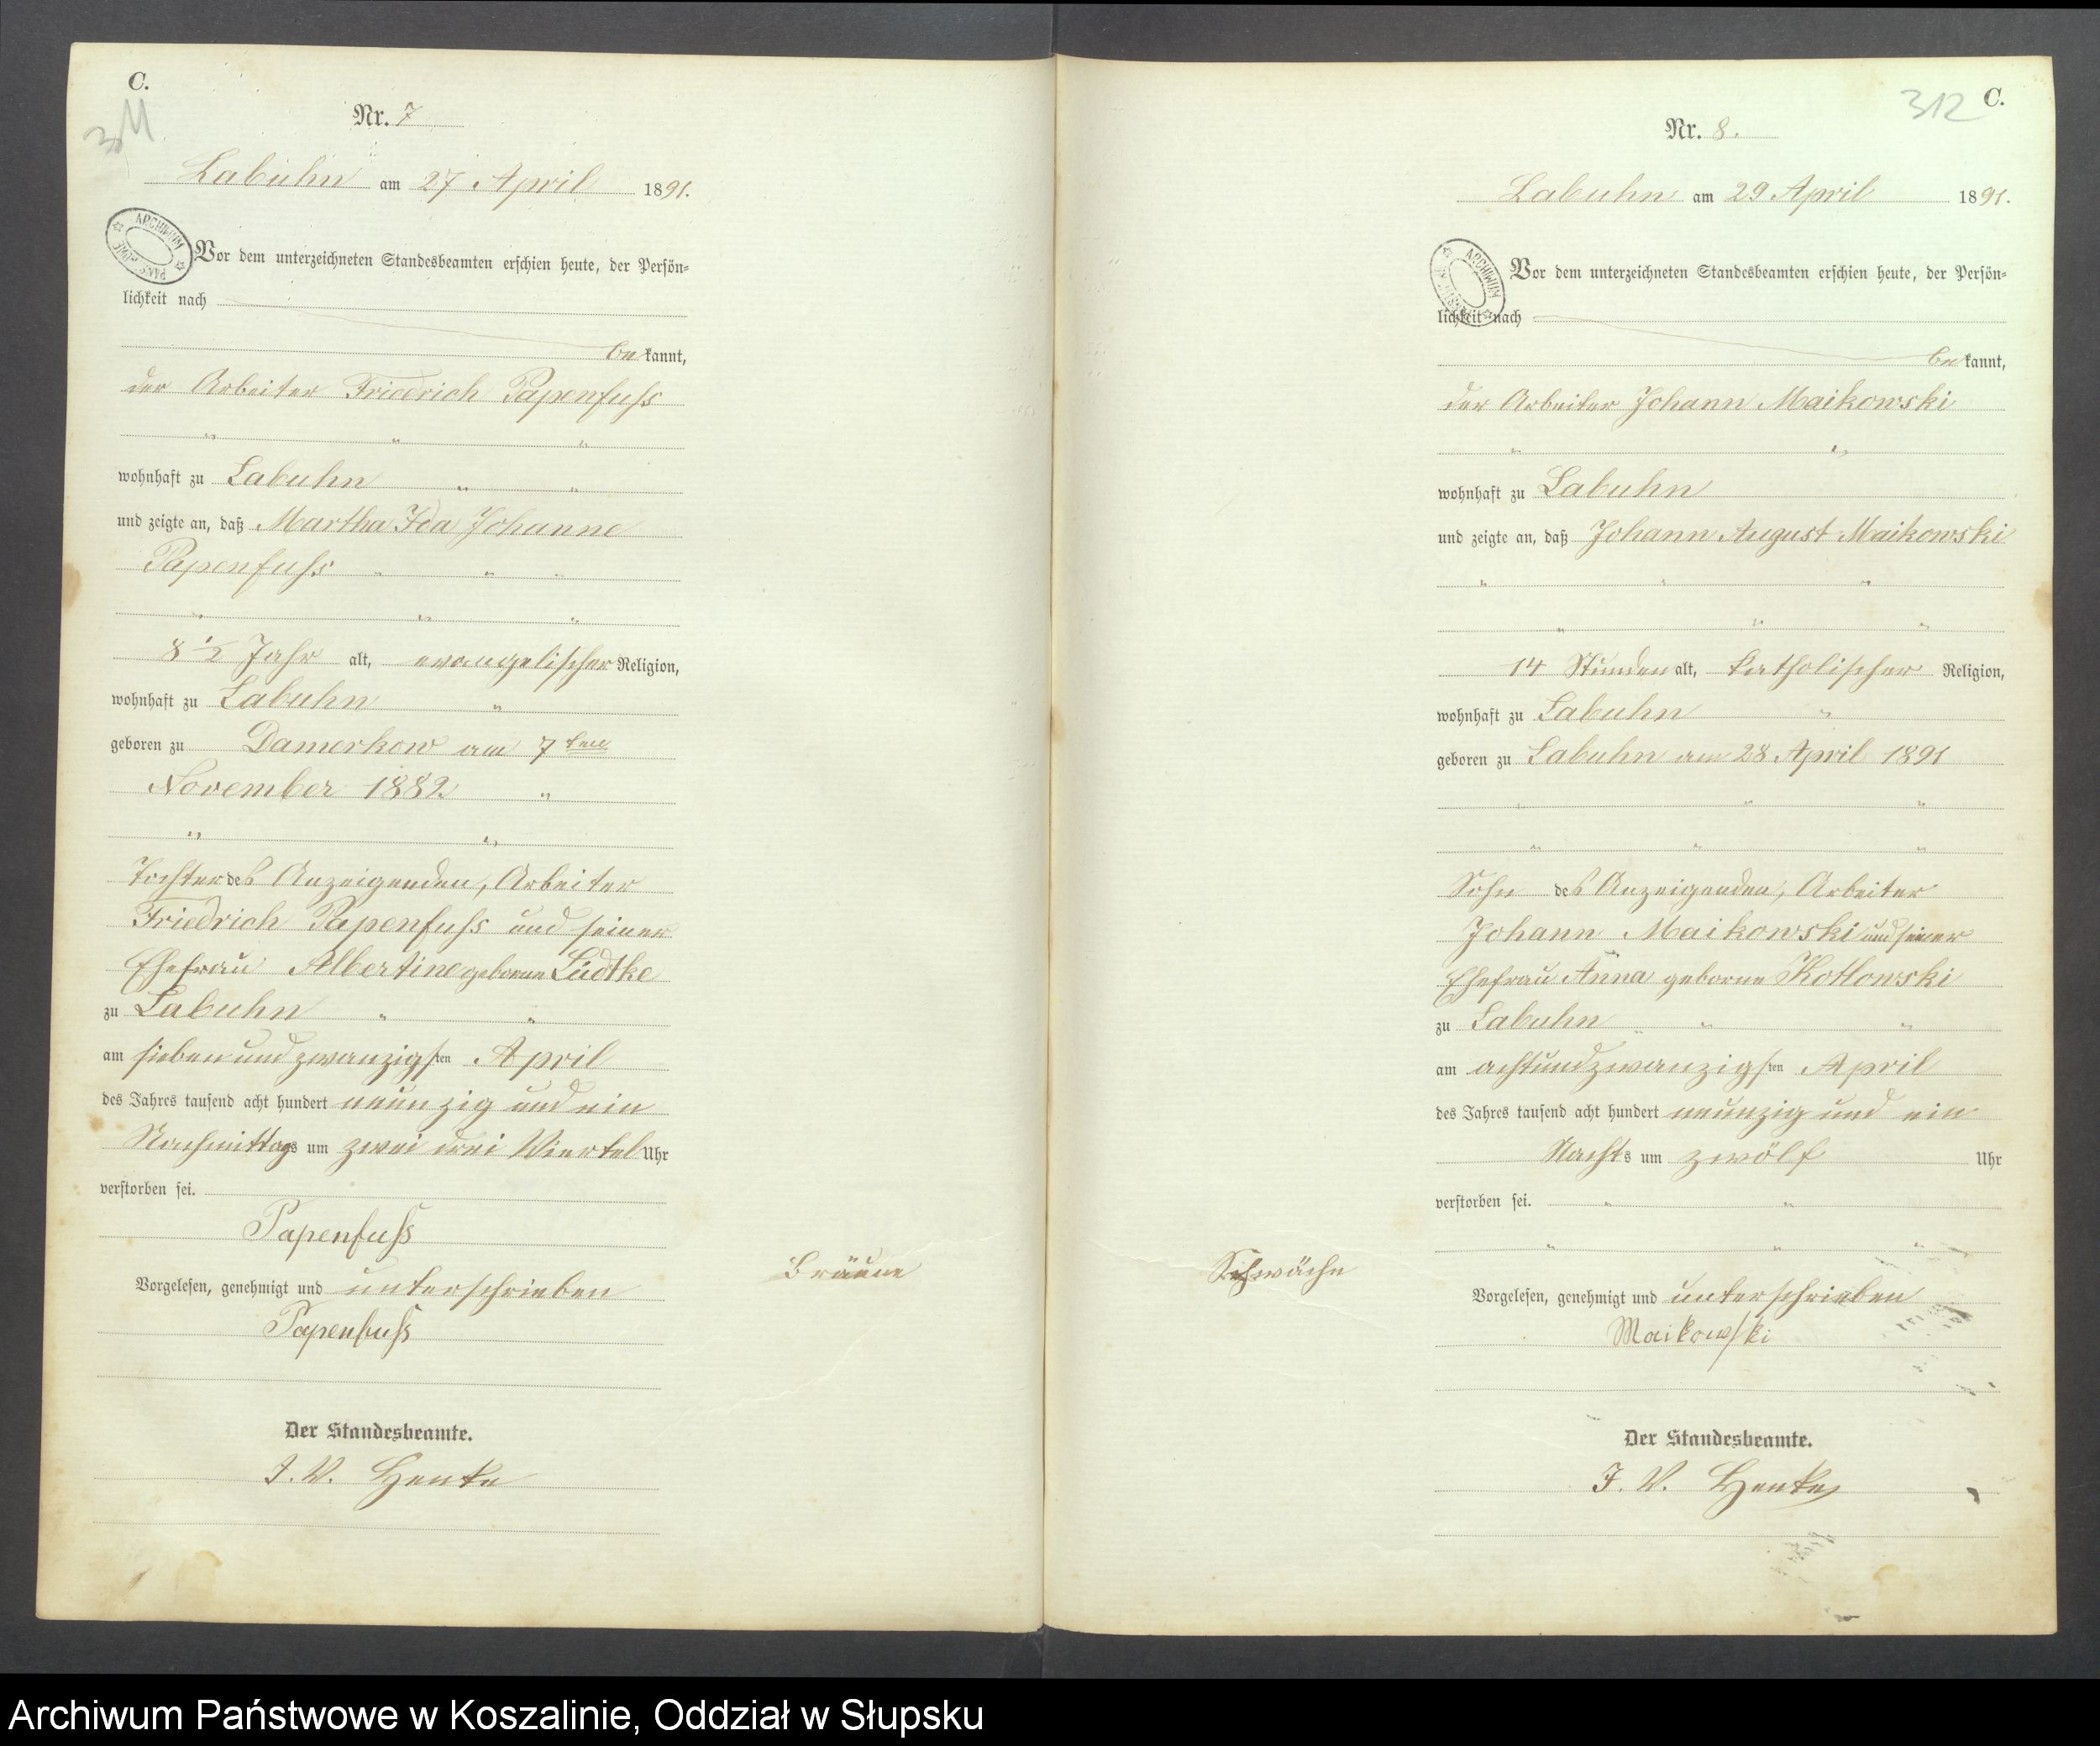 C.
311
Nr. 7
Labuhn am 27 April 1891.
ARCHIWUM
Vor dem unterzeichneten Standesbeamten erschien heute, der Persön-
lichkeit nach
bekannt,
der Arbeiter Friedrich Papenfuß
wohnhaft zu Labuhn
und zeigte an, daß Martha Ida Johanne
Papenfuß
8 1/2 Jahr alt, evangelischer Religion,
wohnhaft zu Labuhn
geboren zu Damerkow am 7ten
November 1882
Tochter des Anzeigenden, Arbeiter
Friedrich Papenfuß und seiner
Ehefrau Albertine geborne Lüdtke
zu Labuhn
am siebenundzwanzigsten April
des Jahres tausend acht hundert neunzig und ein
Nachmittags um zwei drei Viertel Uhr
verstorben sei.
Papenfuß
Vorgelesen, genehmigt und unterschrieben
Papenfuß
Bräune
Der Standesbeamte.
J. V. Henke
312
C.
Nr. 8.
Labuhn am 29 April 1891.
ARCHIWUM
Vor dem unterzeichneten Standesbeamten erschien heute, der Persön-
lichkeit nach
bekannt,
der Arbeiter Johann Maikowski
wohnhaft zu Labuhn
und zeigte an, daß Johann August Maikowski
14 Stunden alt, katholischer Religion,
wohnhaft zu Labuhn
geboren zu Labuhn am 28 April 1891
Sohn des Anzeigenden, Arbeiter
Johann Maikowski und seiner
Ehefrau Anna geborne Kotlowski
zu Labuhn
am achtundzwanzigsten April
des Jahres tausend acht hundert neunzig und ein
Nachts um zwölf Uhr
verstorben sei.
Schwäche
Vorgelesen, genehmigt und unterschrieben
Maikowski
Der Standesbeamte.
J. V. Henke
Archiwum Państwowe w Koszalinie, Oddział w Słupsku